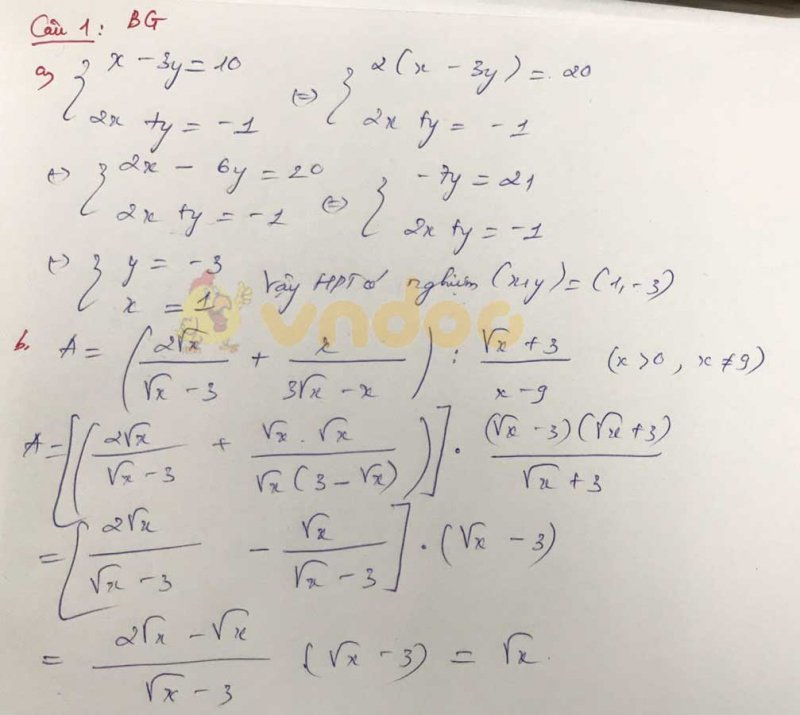 Câu 1: BG
a, { x - 3y = 10 ; 2x + y = -1 (=) { 2(x - 3y) = 20 ; 2x + y = -1
(=) { 2x - 6y = 20 ; 2x + y = -1 (=) { -7y = 21 ; 2x + y = -1
(=) { y = -3 ; x = 1 Vậy HPT có nghiệm (x,y) = (1,-3)
vndoc
b. A = (2√x/(√x - 3) + x/(3√x - x)) : (√x + 3)/(x - 9) (x > 0, x ≠ 9)
A = [(2√x/(√x - 3) + √x . √x/(√x(3 - √x)))] . (√x - 3)(√x + 3)/(√x + 3)
= [2√x/(√x - 3) - √x/(√x - 3)] . (√x - 3)
= (2√x - √x)/(√x - 3) (√x - 3) = √x.